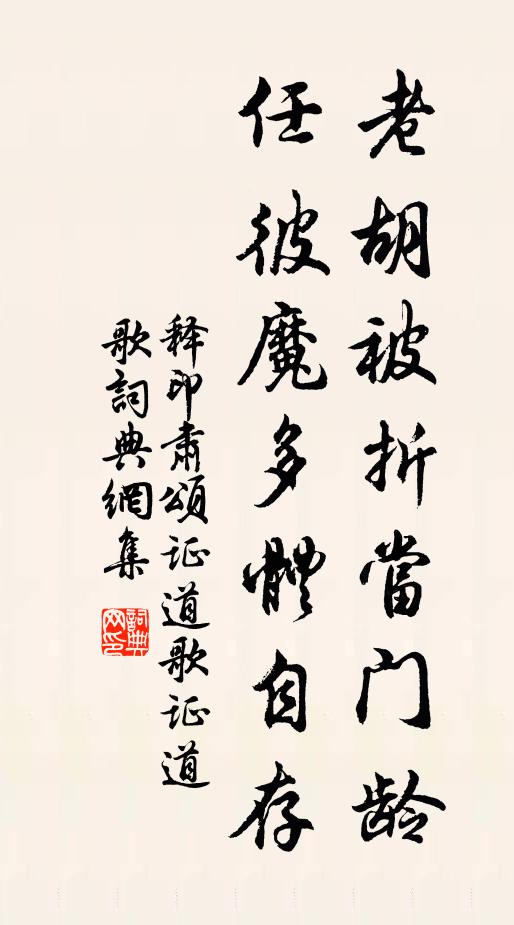 老胡被折當门龄
任彼魔多體自存
释印肃頌证道歌证道
歌詞典網集
詞典
网印